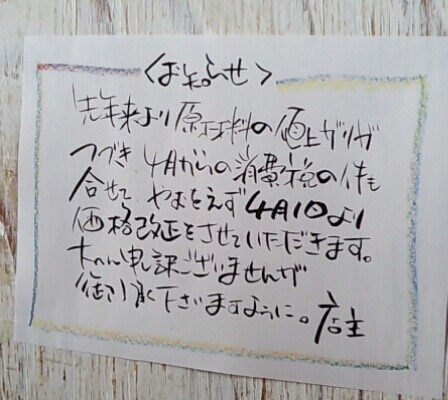 〈お知らせ〉
先年来より原材料の値上がりが
つづき、4月からの消費税の件も
合せて、やむをえず4月1日より
価格改正をさせていただきます。
大へん申し訳ございませんが
御了承下さいますように。店主